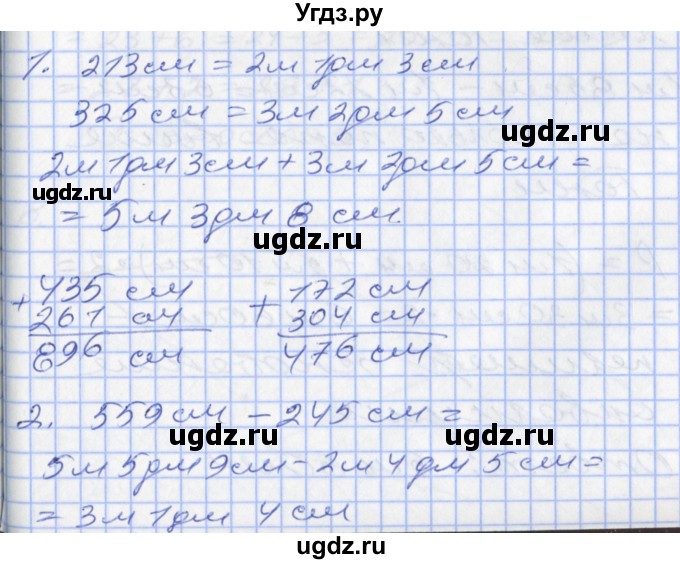 Угдз.ру
1. 213 см = 2м 1дм 3см
325 см = 3м 2дм 5см
ugdz.ru
2м 1дм 3см + 3м 2дм 5см =
ugdz.ru
= 5м 3дм 8 см.
ugdz.ru
+ 435 см + 172 см
261 см 304 см
896 см 476 см
ugdz.ru
2. 559 см - 245 см =
ugdz.ru ugdz.ru
5м 5дм 9см - 2м 4дм 5см =
= 3м 1дм 4см
ugdz.ru